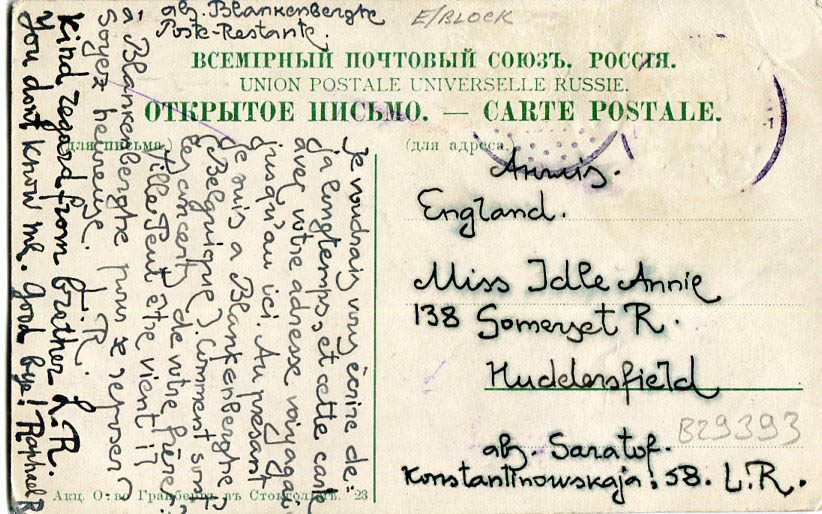 abz. Blankenberghe
Poste-Restante.
E/BLOCK
ВСЕМІРНЫЙ ПОЧТОВЫЙ СОЮЗЪ. РОССІЯ.
UNION POSTALE UNIVERSELLE RUSSIE.
ОТКРЫТОЕ ПИСЬМО. — CARTE POSTALE.
(для письма.)
(для адреса.)
Je voudrais vous écrire de:
ja longtemps, et cette carte
avec votre adresse voyageai
jusqu'au ici. Au présent
je suis a Blankenberghe
(Belgique). Comment sont
les concerts de votre frère?
Peut être vient il
a Blankenberghe pour se reposer?
Soyez heureuse. L. R.
Kind regard from brather L. R.
You dont know me. Good bye! Raphael R
Annis.
England.
Miss Idle Annie
138 Somerset R.
Huddersfield
B29393
abz. Saratof.
Konstantinowskaja: 58. L. R.
Акц. О-во Гранбергъ въ Стокгольмѣ. 23